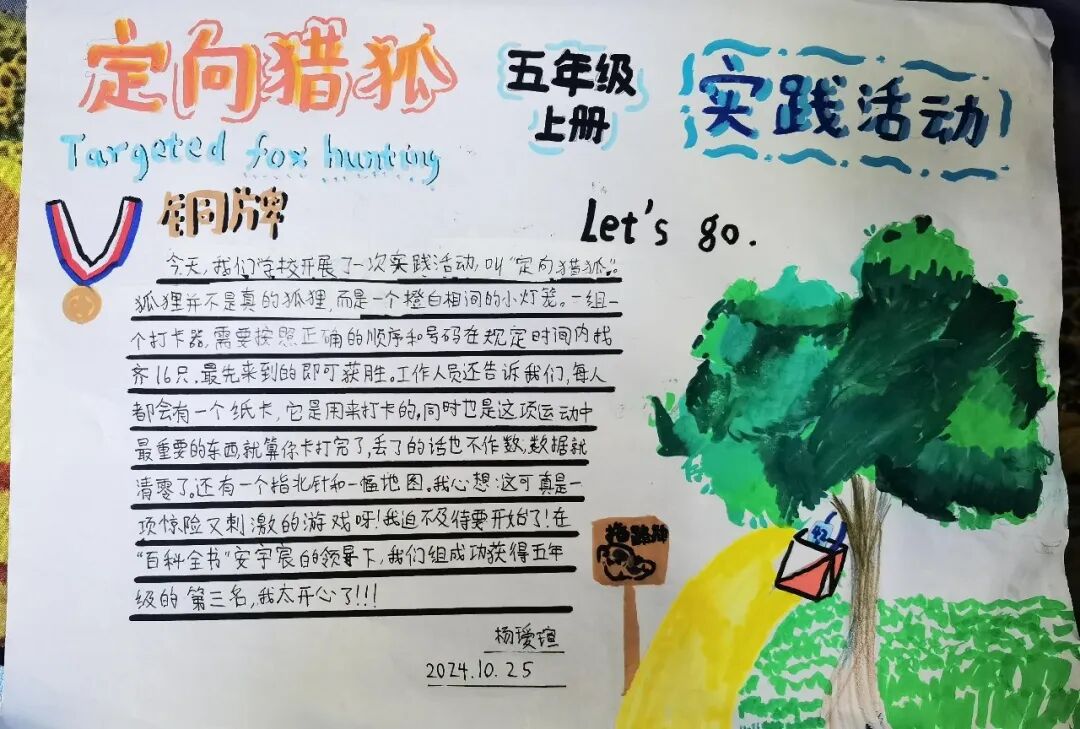 定向猎狐
五年级
上册
实践活动
Targeted fox hunting
铜牌
Let's go.
今天,我们学校开展了一次实践活动,叫“定向猎狐”。
狐狸并不是真的狐狸,而是一个橙白相间的小灯笼。一组一
个打卡器,需要按照正确的顺序和号码在规定时间内找
齐16只.最先来到的即可获胜。工作人员还告诉我们,每人
都会有一个纸卡,它是用来打卡的,同时也是这项运动中
最重要的东西就算你卡打完了,丢了的话也不作数,数据就
清零了。还有一个指北针和一幅地图。我心想:这可真是一
项惊险又刺激的游戏呀!我迫不及待要开始了!在
“百科全书”安宇宸的领导下,我们组成功获得五年
级的第三名,我太开心了!!!
杨瑷瑄
2024.10.25
指路牌
42